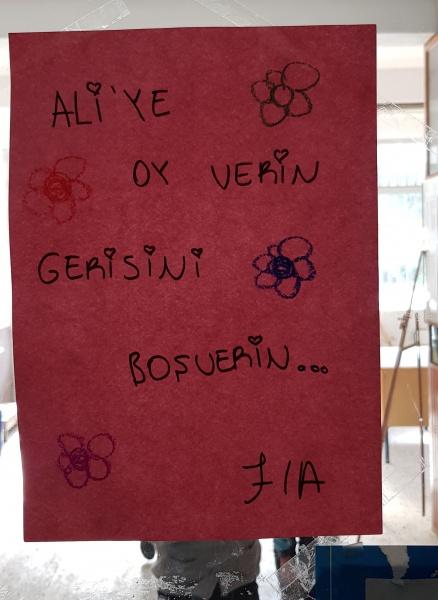 ALİ'YE
OY VERİN
GERİSİNİ
BOŞVERİN...
7/A